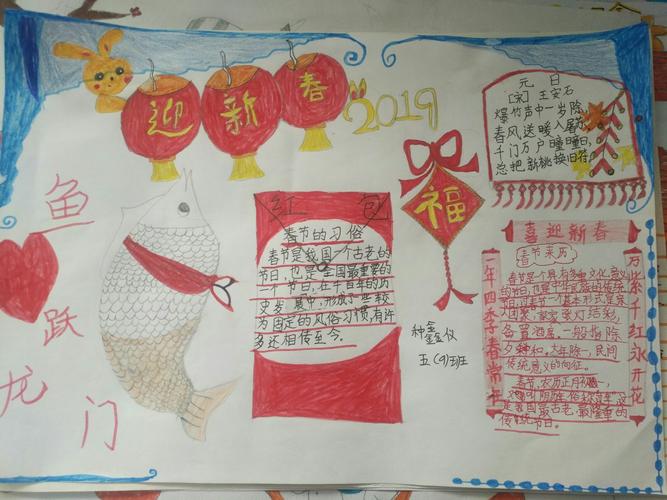 迎新春
2019
元日
[宋] 王安石
爆竹声中一岁除
春风送暖入屠苏
千门万户曈曈日,
总把新桃换旧符
鱼跃龙门
红包
春节的习俗
春节是我国一个古老的
节日,也是全国最重要的
一个节日,在千百年的历
史发展中,形成了一些较
为固定的风俗习惯,有许
多还相传至今。
福
鑫仪
五(9)班
喜迎新春
一年四季春常在
万紫千红永开花
春节来历
春节是个具有多种文化意义
的节日,也是中华民族的传统
节日,过春节一个基本形式是家
人团聚,家家张灯结彩,
备置酒席.一般指除
夕 和.大年除一,民间
传统意义的向征。
春节,农历正月初一,
是我国最古老,最隆重的
传统节日。